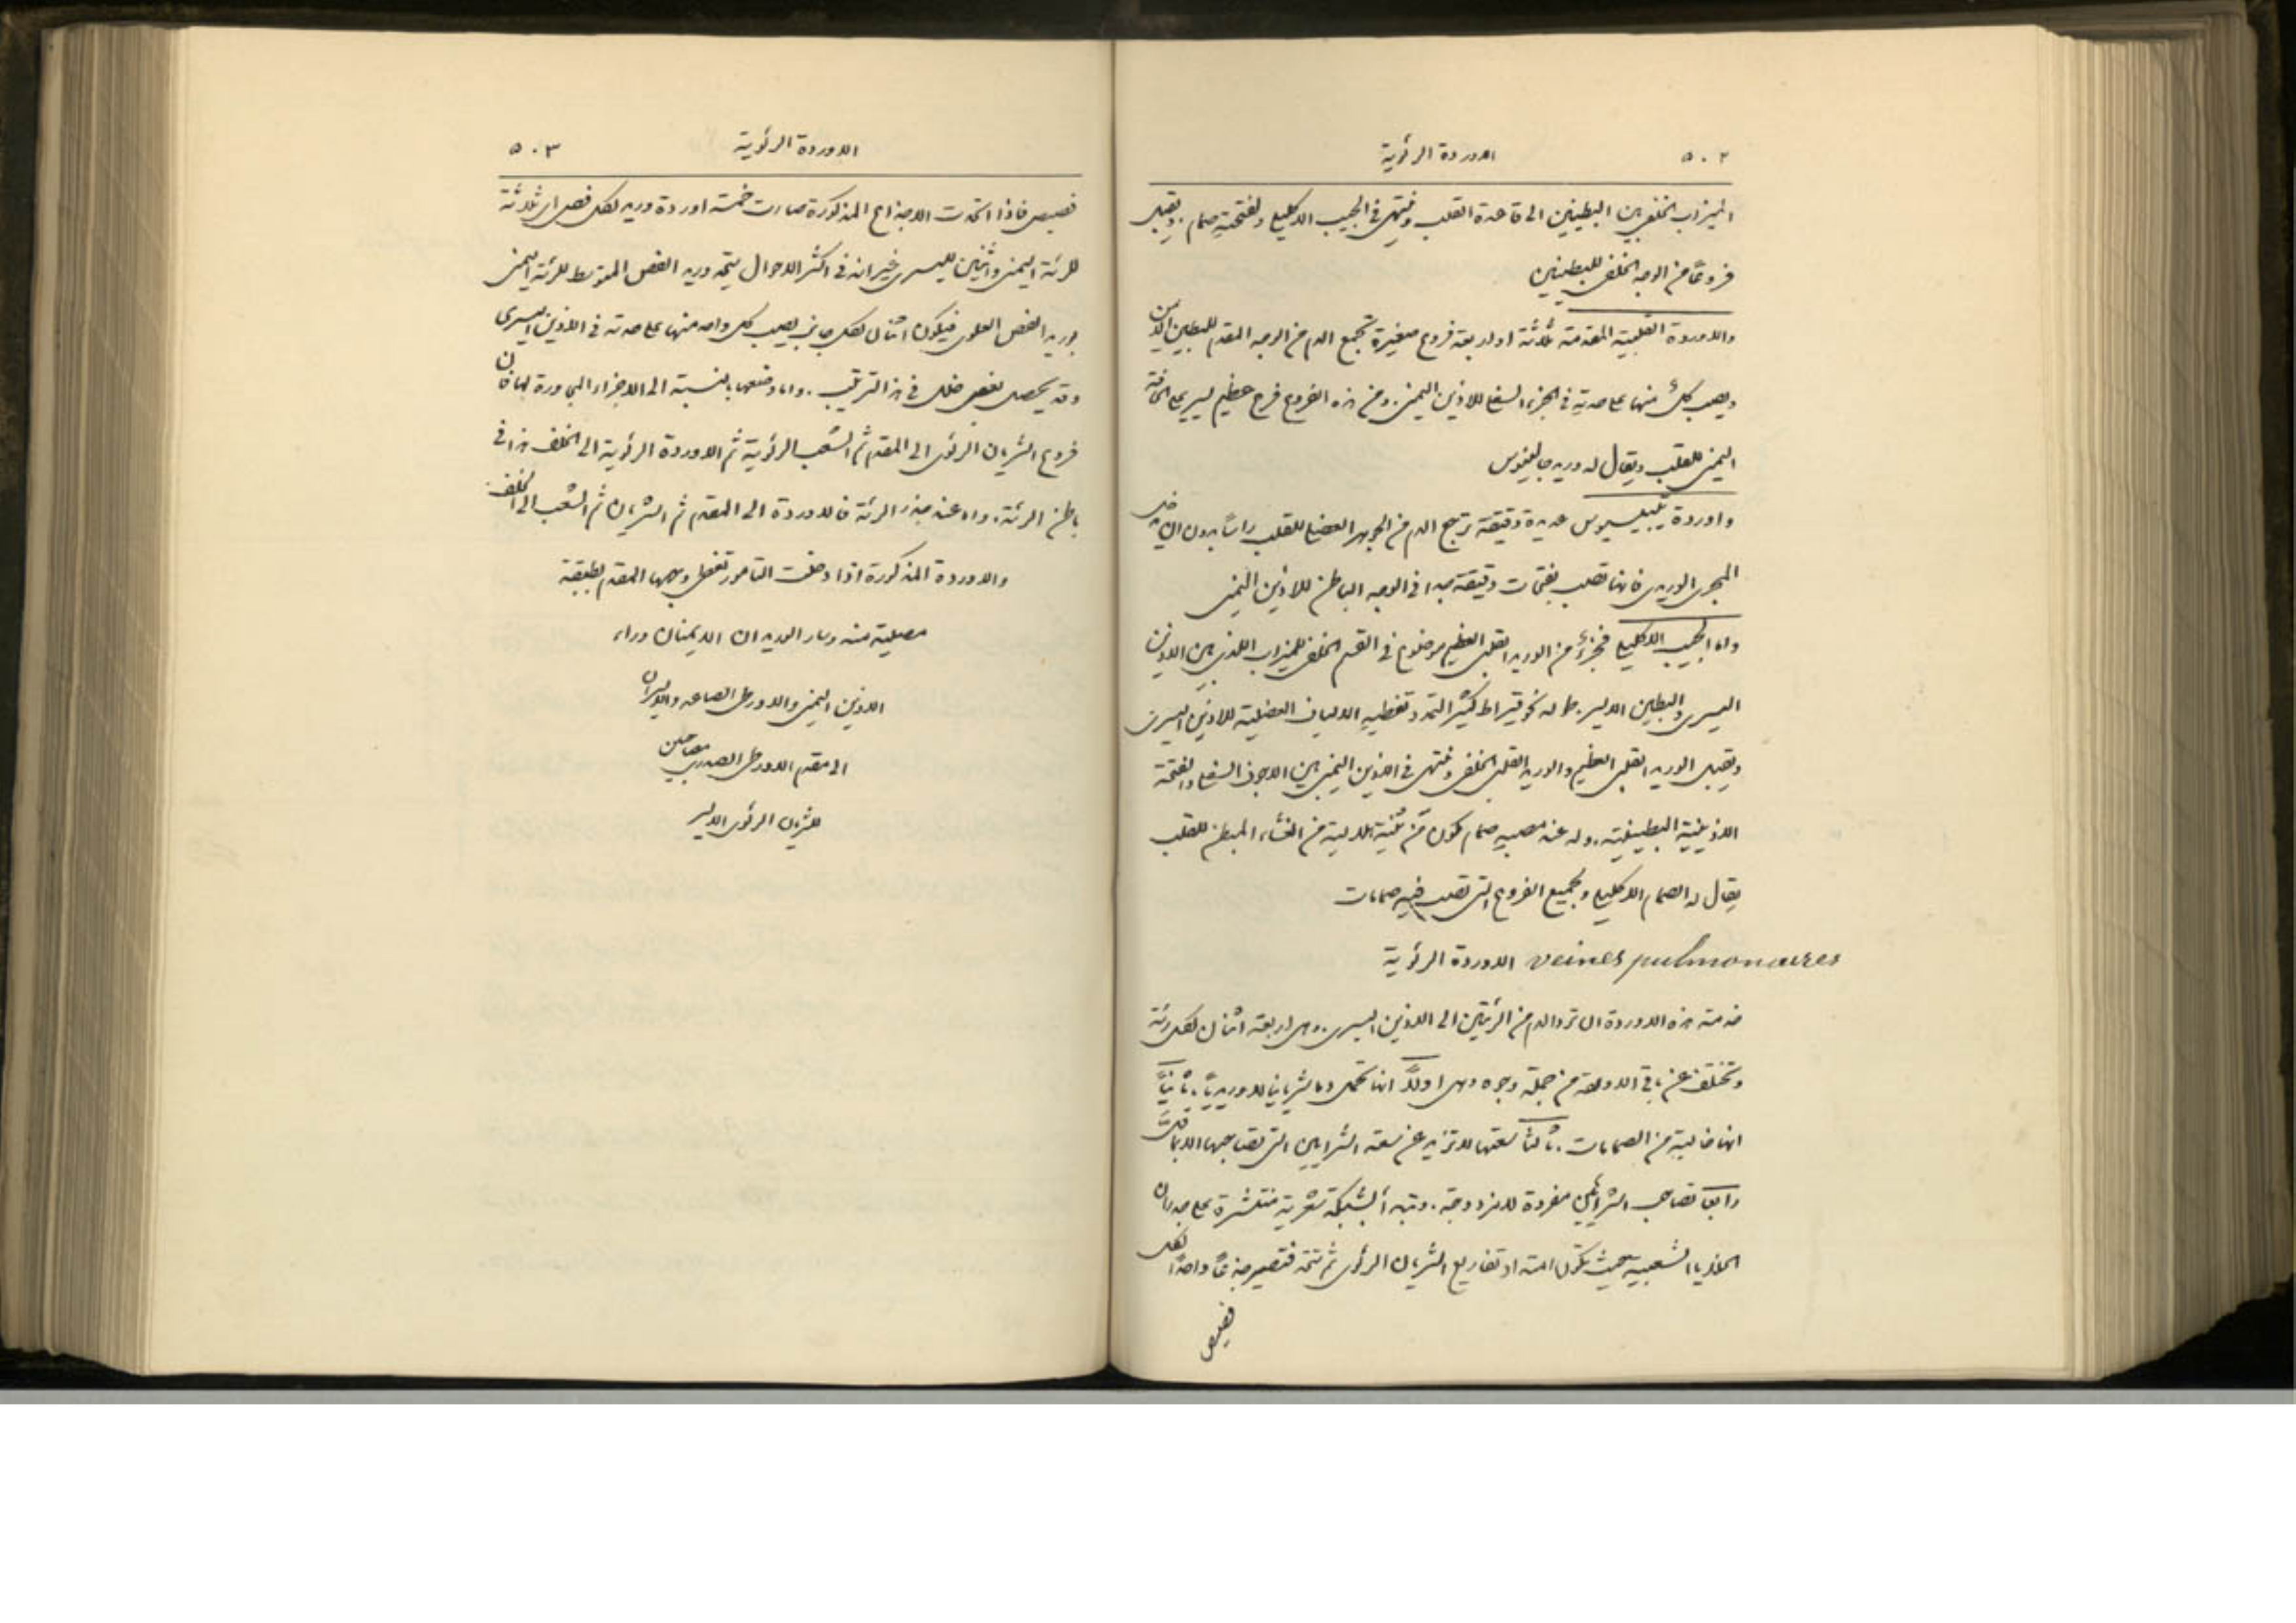 ٥٠٢
الاوردة الرئوية
الميزاب الخلفي بين البطينين الى قاعدة القلب وينتهي في الجيب الاكليلي ولفتحتهِ صمام. ويقبل
فروعًا من الوجه الخلفي للبطينين
والاوردة القلبية المقدمة ثلاثة او اربعة فروع صغيرة تجمع الدم من الوجه المقدم للبطين الايمن
ويصب كلٌّ منها على حدتهِ في الجزء السفلي للاذين اليمنى. ومن هذه الفروع فرع عظيم يسير على الحافة
اليمنى للقلب ويقال له وريد جالينوس
واوردة ثيبيسيوس عديدة دقيقة ترجع الدم من الجوهر العضلي للقلب راسًا بدون ان يدخل
المجرى الوريدي فانها تصب بفتحات دقيقة جدا في الوجه الباطن للاذين اليمنى
واما الجيب الاكليلي فجزءٌ من الوريد القلبي العظيم موضوع في القسم الخلفي للميزاب الذي بين الاذين
اليسرى والبطين الايسر. طوله نحو قيراط كثير التمدد تغطيهِ الالياف العضلية للاذين اليسرى
ويقبل الوريد القلبي العظيم والوريد القلبي الخلفي وينتهي في الاذين اليمنى بين الاجوف السفلي والفتحة
الاذينية البطينية. وله عند مصبهِ صمام مكون من ثنية هلالية من الغشاء المبطن للقلب
يقال له الصمام الاكليلي ولجميع الفروع التي تصب فيهِ صمامات
الاوردة الرئوية veines pulmonaires
خدمة هذه الاوردة ان ترد الدم من الرئتين الى الاذين اليسرى. وهي اربعة اثنان لكل رئة
وتختلف عن باقي الاوردة من جملة وجوه وهي اولاً انها تحمل دما شريانيا لا وريديًا. ثانيًا
انها خالية من الصمامات. ثالثًا سعتها لا تزيد عن سعة الشرايين التي تصاحبها الا بما قلَّ
رابعًا تصاحب الشرايين مفردة لا مزدوجة. وتبدأ بشبكة شعرية منتشرة على جدران
الخلايا الشعبية حيث تكون امتداد تفاريع الشريان الرئوي ثم تتحد فتصير جذعًا واحدًا لكل
فصيص
٥٠٣
الاوردة الرئوية
فصيص فاذا اتحدت الاجذاع المذكورة صارت خمسة اوردة وريد لكل فص اي ثلاثة
للرئة اليمنى واثنين لليسرى غير انه في اكثر الاحوال يتحد وريد الفص المتوسط للرئة اليمنى
بوريد الفص العلوي فيكون اثنان لكل جانب يصب كل واحد منها على حدته في الاذين اليسرى
وقد يحصل بعض خلل في هذا الترتيب. واما وضعها بالنسبة الى الاجزاء المجاورة لها فان
فروع الشريان الرئوي الى المقدم ثم الشعب الرئوية ثم الاوردة الرئوية الى الخلف هذا في
باطن الرئة. واما عند جذر الرئة فالاوردة الى المقدم ثم الشريان ثم الشعب الى الخلف.
والاوردة المذكورة اذا دخلت التامور تغطي وجهها المقدم بطبقة
مصلية منه وسار الوريدان الايمنان وراء
الاذين اليمنى والاورطى الصاعد والايسران
الى مقدم الاورطى الصدري مصاحبين
للشريان الرئوي الايسر